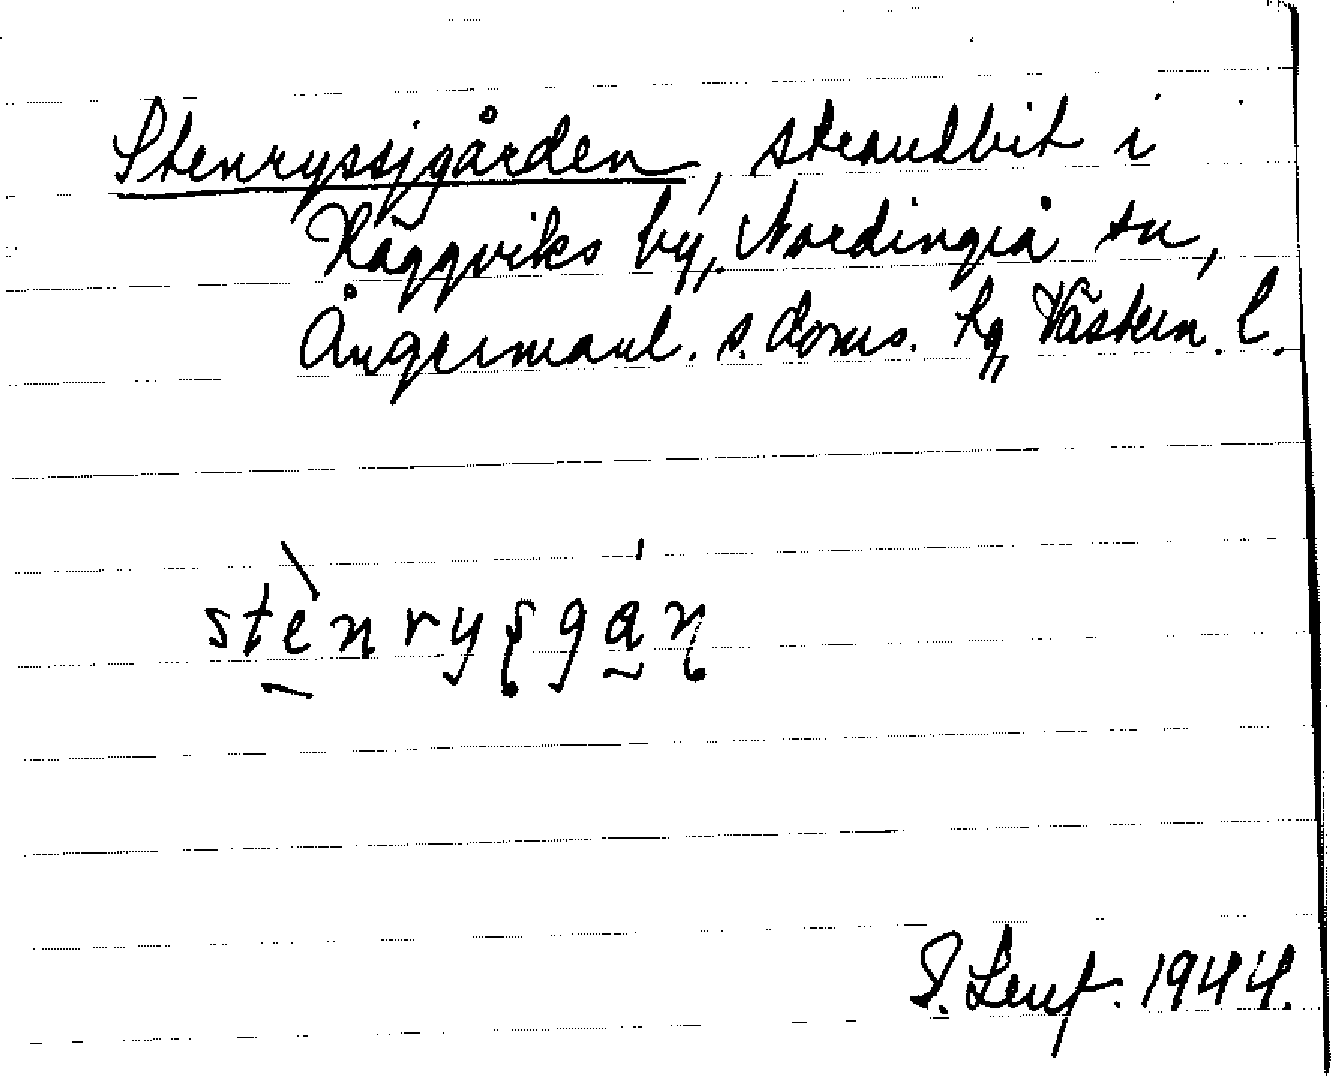 Stenryssjgården, strandbit i
Häggviks by, Nordingrå sn,
Ångermanl. s. doms. hg, Västern. l.
stènryʂgán
S. Leuf. 1944.